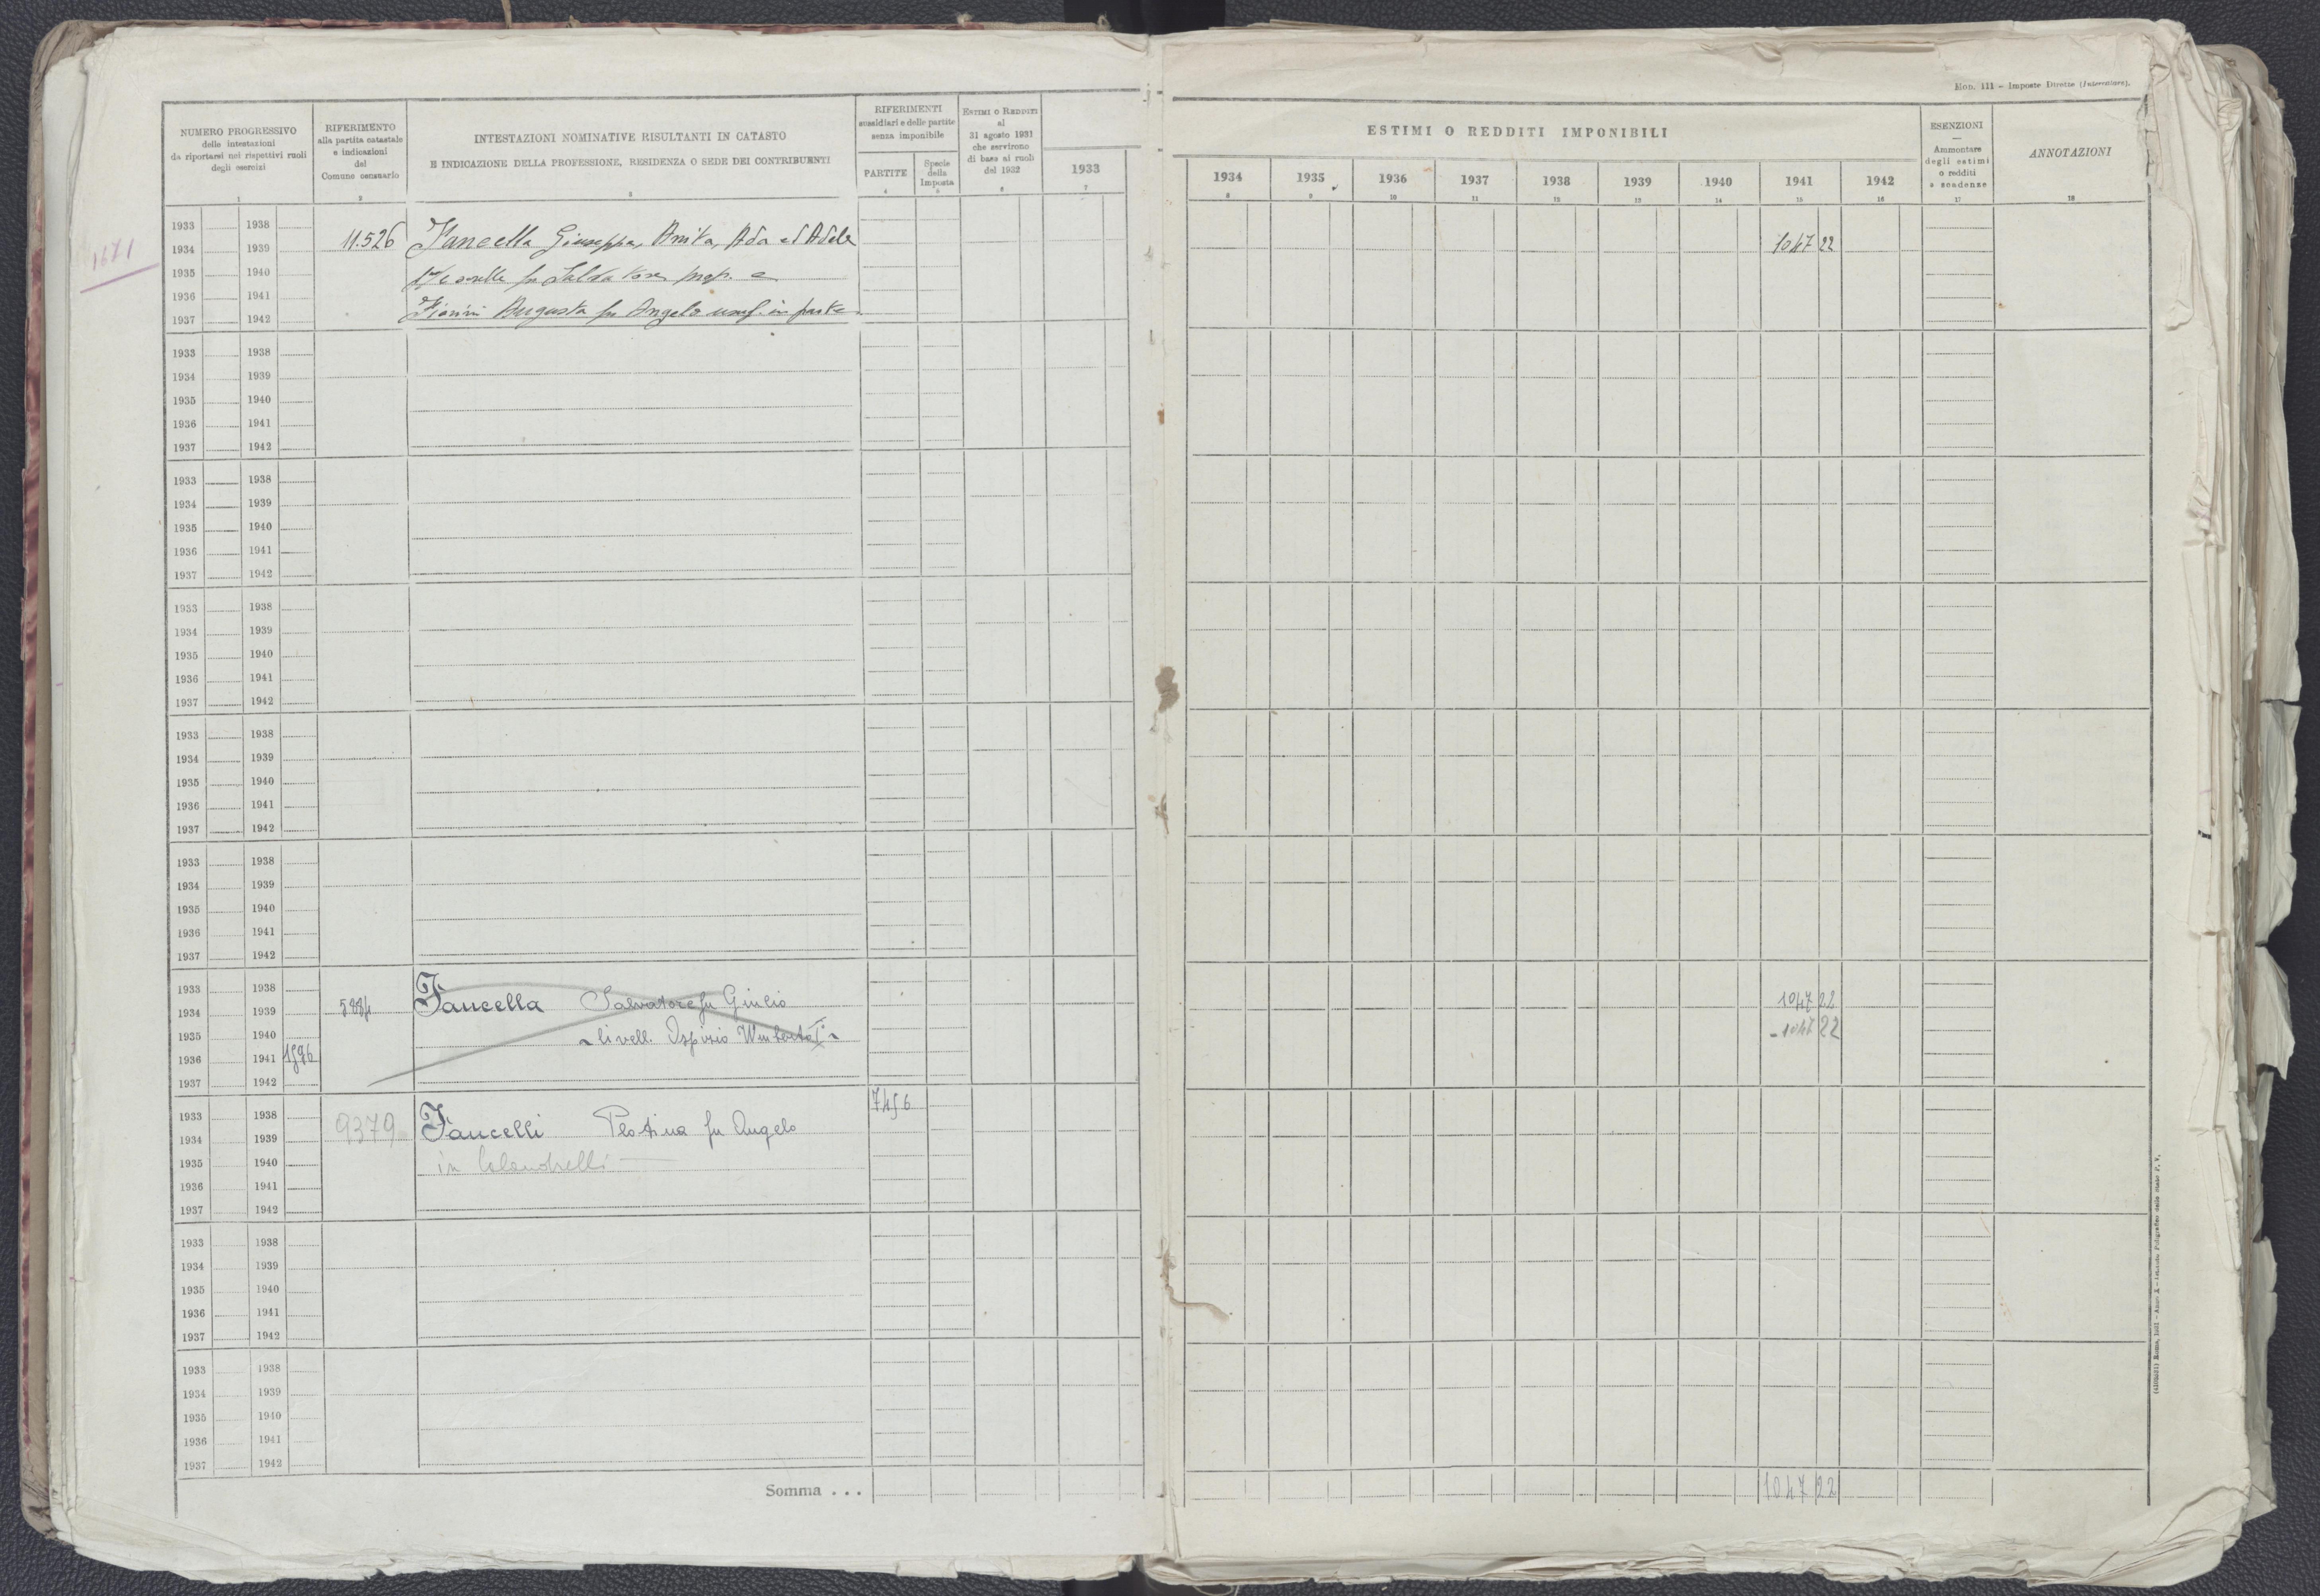 Mod. 111 – Imposte Dirette (Intercalare).
NUMERO PROGRESSIVO
delle intestazioni
da riportarsi nei rispettivi ruoli
degli esercizi
1
RIFERIMENTO
alla partita catastale
e indicazioni
del
Comune censuario
2
INTESTAZIONI NOMINATIVE RISULTANTI IN CATASTO
E INDICAZIONE DELLA PROFESSIONE, RESIDENZA O SEDE DEI CONTRIBUENTI
3
RIFERIMENTI
sussidiari e delle partite
senza imponibile
PARTITE
4
Specie
della
Imposta
5
ESTIMI O REDDITI
al
31 agosto 1931
che servirono
di base ai ruoli
del 1932
6
1933
7
ESTIMI O REDDITI IMPONIBILI
1934 1935 1936 1937 1938 1939 1940 1941 1942
8 9 10 11 12 13 14 15 16
ESENZIONI
—
Ammontare
degli estimi
o redditi
e scadenze
17
ANNOTAZIONI
18
1671
1933 1938
1934 1939 11.526 Fancella Giuseppa, Anita, Ada ed Adele 1047 22
1935 1940 sorelle fu Salvatore prop. e
1936 1941
1937 1942 Fiorini Augusta fu Angelo usuf. in parte
1933 1938
1934 1939
1935 1940
1936 1941
1937 1942
1933 1938
1934 1939
1935 1940
1936 1941
1937 1942
1933 1938
1934 1939
1935 1940
1936 1941
1937 1942
1933 1938
1934 1939
1935 1940
1936 1941
1937 1942
1933 1938
1934 1939
1935 1940
1936 1941
1937 1942
1933 1938
1934 1939 Fancella Salvatore fu Giulio 1047 22
1935 1940 livell. Ospizio Umberto I° - 1047 22
1936 1941 1596
1937 1942
1933 1938 7456
1934 1939 9379 Fancelli Plotina fu Angelo
1935 1940 in Calandrelli
1936 1941
1937 1942
1933 1938
1934 1939
1935 1940
1936 1941
1937 1942
1933 1938
1934 1939
1935 1940
1936 1941
1937 1942
Somma . . . 1047 22